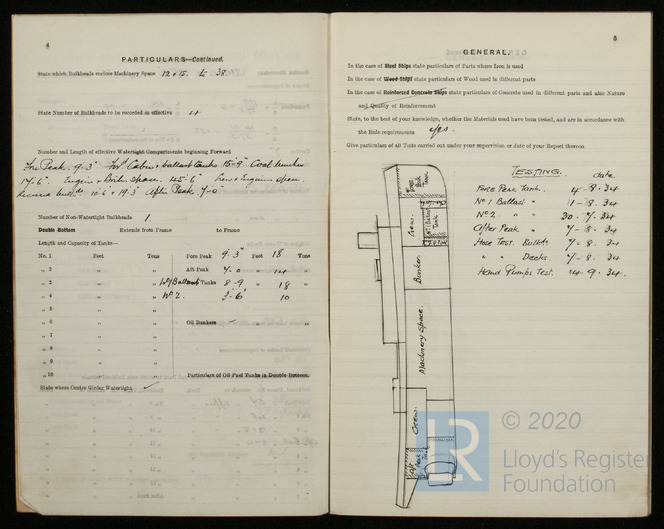 4
PARTICULARS—Continued.
State which Bulkheads enclose Machinery Space 12 & 15. to 38.
State Number of Bulkheads to be recorded as effective 4
Number and Length of effective Watertight Compartments beginning Forward
Fore Peak. 9'-3" For'd Cabin & ballast tanks 15'-9" Coal bunker
17'-6". Engine & Boiler space. 45'-6" Crew &
10'-6" & 19'-3" After Peak. 7'-0"
Number of Non-Watertight Bulkheads 1.
Double Bottom Extends from Frame to Frame
Length and Capacity of Tanks—
No. 1 Feet Tons Fore Peak 9'-3" Feet 18 Tons
„ 2 „ „ Aft Peak 7'-0 „ 14 „
„ 3 „ „ No 1 Ballast Tanks 8'-9 „ 18 „
„ 4 „ „ No 2. 3'-6" 10
„ 5 „ „
„ 6 „ „ Oil Bunkers „ „
„ 7 „ „
„ 8 „ „
„ 9 „ „
„ 10 „ „ Particulars of Oil Fuel Tanks in Double Bottom.
State where Centre Girder Watertight
5
GENERAL.
In the case of Steel Ships state particulars of Parts where Iron is used
In the case of Wood Ships state particulars of Wood used in different parts
In the case of Reinforced Concrete Ships state particulars of Concrete used in different parts and also Nature
and Quality of Reinforcement
State, to the best of your knowledge, whether the Materials used have been tested, and are in accordance with
the Rule requirements yes.
Give particulars of all Tests carried out under your supervision to date of your Report thereon
TESTING. date.
Fore Peak Tank. 4-8-34
No 1 Ballast „ 1-8-34
No 2. „ 30-7-34
After Peak „ 7-8-34
Hose Test. Bulkhds 7-8-34
„ „ Decks. 7-8-34
Hand Pumps Test. 14-9-34.
Fore Peak Tank.
Crew.
No 1 Ballast Tank
Bunker.
Machinery Space.
Crew.
Aft Peak Tank
LR © 2020
Lloyd's Register
Foundation